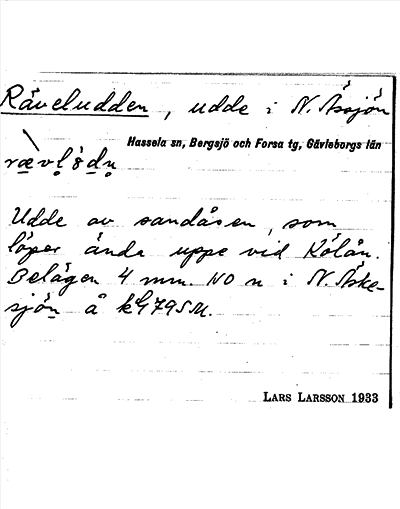 Räveludden, udde i N. Åssjön
Hassela sn, Bergsjö och Forsa tg, Gävleborgs län
Udde av sandåsen, som
löper ända uppe vid Kölån.
Belägen 4 mm. NO n i N. Åske-
sjön å
LARS LARSSON 1933